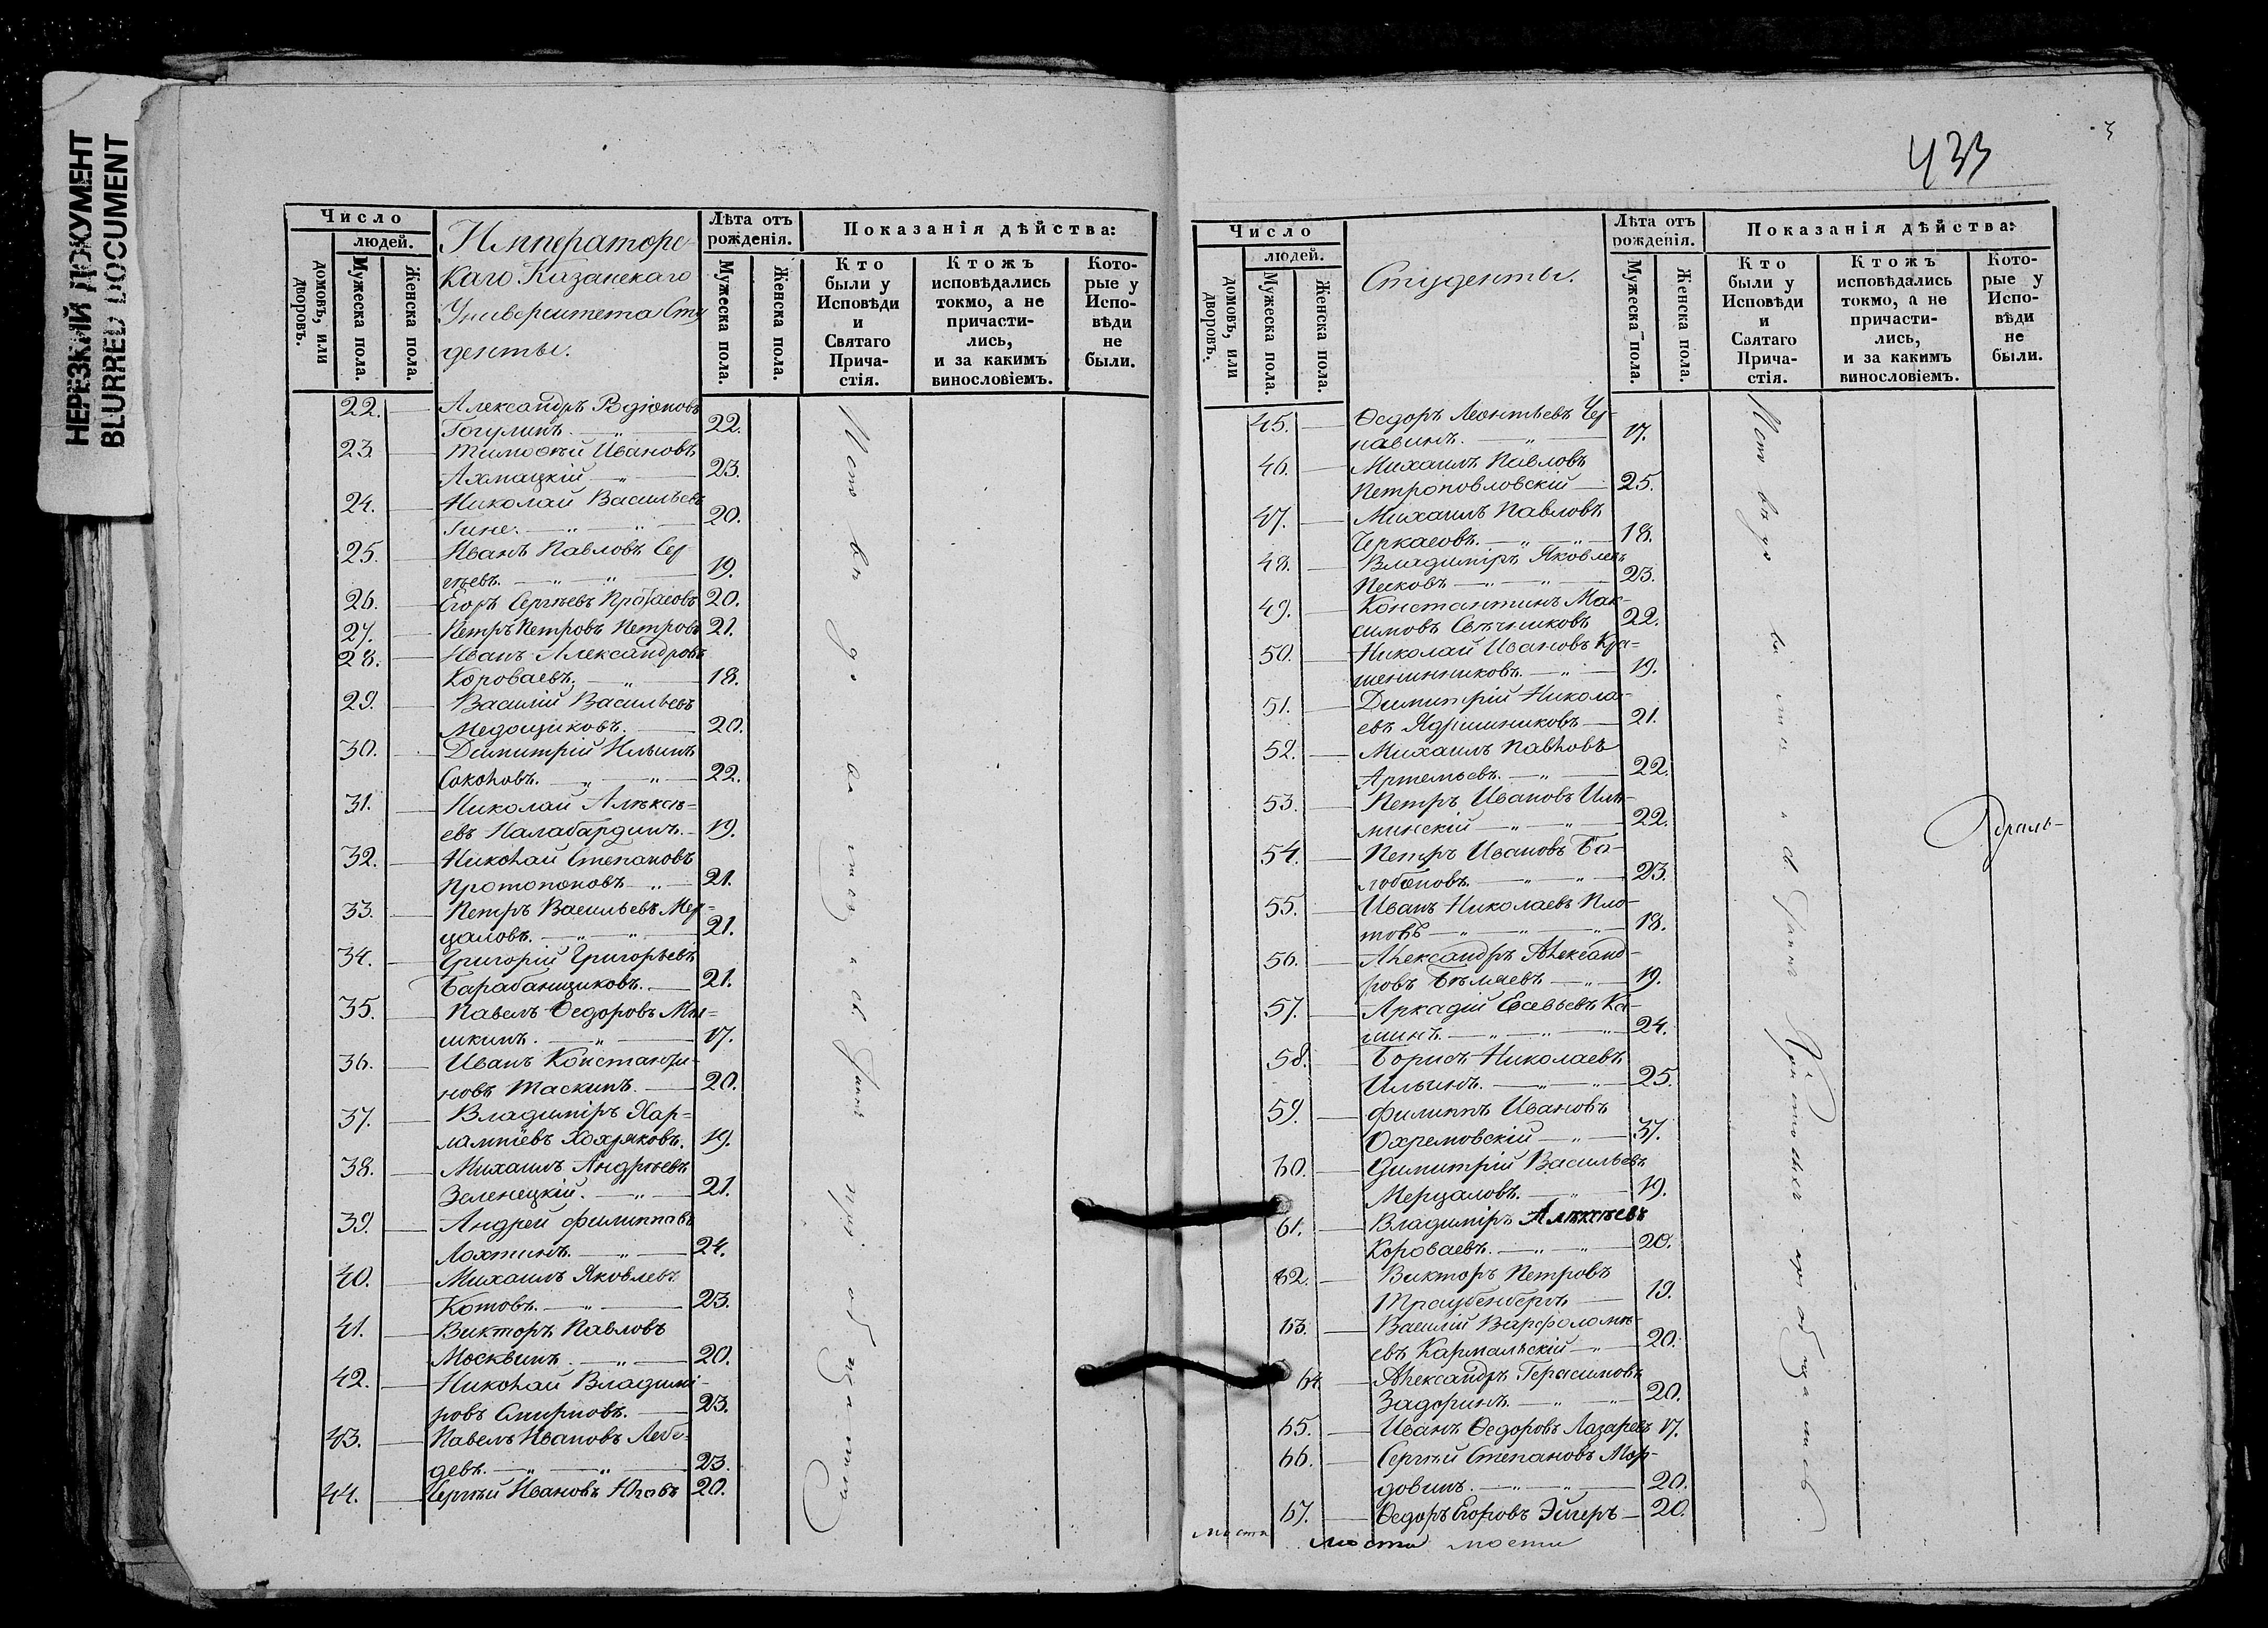 НЕРЕЗКИЙ ДОКУМЕНТ
BLURRED DOCUMENT
Число
людей.
домовъ, или дворовъ.
Мужеска пола.
Женска пола.
Императорс-
каго Казанскаго
Университета Сту
денты.
Лѣта отъ рожденія.
Мужеска пола.
Женска пола.
Показанія дѣйства:
Кто были у Исповѣди и Святаго Прича- стія.
Ктожъ исповѣдались токмо, а не причасти- лись, и за какимъ винословіемъ.
Кото- рые у Испо- вѣди не были.
22. Александръ
Гогулинъ. 22.
23. Тимоѳей Ивановъ
Ахмацкій 23.
24. Николай Васильевъ
Гине. 20.
25. Иванъ Павловъ Сер-
гѣевъ. 19.
26. Егоръ Сергѣевъ Протасовъ 20.
27. Петръ Петровъ Петровъ 21.
28. Иванъ Александровъ
Короваевъ. 18.
29. Василій Васильевъ
Медощиковъ. 20.
30. Димитрій Ильинъ
Соколовъ. 22.
31. Николай Алексѣ=
евъ Налабардинъ. 19.
32. Николай Степановъ
Протопоповъ 21.
33. Петръ Васильевъ Мер=
цаловъ. 21.
34. Григорій Григорьевъ
Барабанщиковъ. 21.
35. Павелъ Ѳедоровъ Мы=
шкинъ. 17.
36. Иванъ Константи-
новъ Таскинъ. 20.
37. Владиміръ Хар=
лампіевъ Хохряковъ. 19.
38. Михаилъ Андреевъ
Зеленецкій. 21.
39. Андрей Филипповъ
Лохтинъ. 24.
40. Михаилъ Яковлевъ
Котовъ. 23.
41. Викторъ Павловъ
Москвинъ. 20.
42. Николай Владимі-
ровъ Смирновъ. 23.
43. Павелъ Ивановъ Лебе-
девъ. 23.
44. Сергѣй Ивановъ 20.
433
3
Число
людей.
домовъ, или дворовъ.
Мужеска пола.
Женска пола.
Студенты.
Лѣта отъ рожденія.
Мужеска пола.
Женска пола.
Показанія дѣйства:
Кто были у Исповѣди и Святаго Прича- стія.
Ктожъ исповѣдались токмо, а не причасти- лись, и за какимъ винословіемъ.
Кото- рые у Испо- вѣди не были.
45. Ѳедоръ Леонтьевъ Чер-
навинъ. 17.
46. Михаилъ Павловъ
Петроповловскій 25.
47. Михаилъ Павловъ
Черкасовъ. 18.
48. Владиміръ Яковлевъ
Песковъ 23.
49. Константинъ Мак-
симовъ Свѣшниковъ 22.
50. Николай Ивановъ Кра=
шенинниковъ. 19.
51. Димитрій Никола-
евъ Ядришниковъ 21.
52. Михаилъ Павловъ
Артемьевъ. 22.
53. Петръ Ивановъ Иль-
минскій 22.
54. Петръ Ивановъ Бо-
лобановъ. 23.
55. Иванъ Николаевъ Пло-
товъ 18.
56. Александръ Александ-
ровъ Бѣляевъ 19.
57. Аркадій Евсевьевъ Ка-
шинъ. 24.
58. Борисъ Николаевъ
Ильинъ. 25.
59. Филиппъ Ивановъ
Охремовскій 37.
60. Димитрій Васильевъ
Мерцаловъ. 19.
61. Владиміръ Алексѣевъ
Короваевъ. 20.
62. Викторъ Петровъ
Траубенбергъ 19.
63. Василій Варѳоломѣ-
евъ Кармальскій 20.
64. Александръ Герасимовъ
Задоринъ. 20.
65. Иванъ Ѳедоровъ Лазаревъ 17.
66. Сергѣй Степановъ Мор-
довинъ. 20.
67. Ѳедоръ Егоровъ Эйгеръ 20.